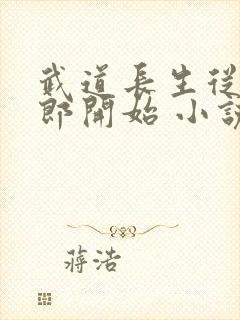 武道長生從
郎開始 小説
蔣浩